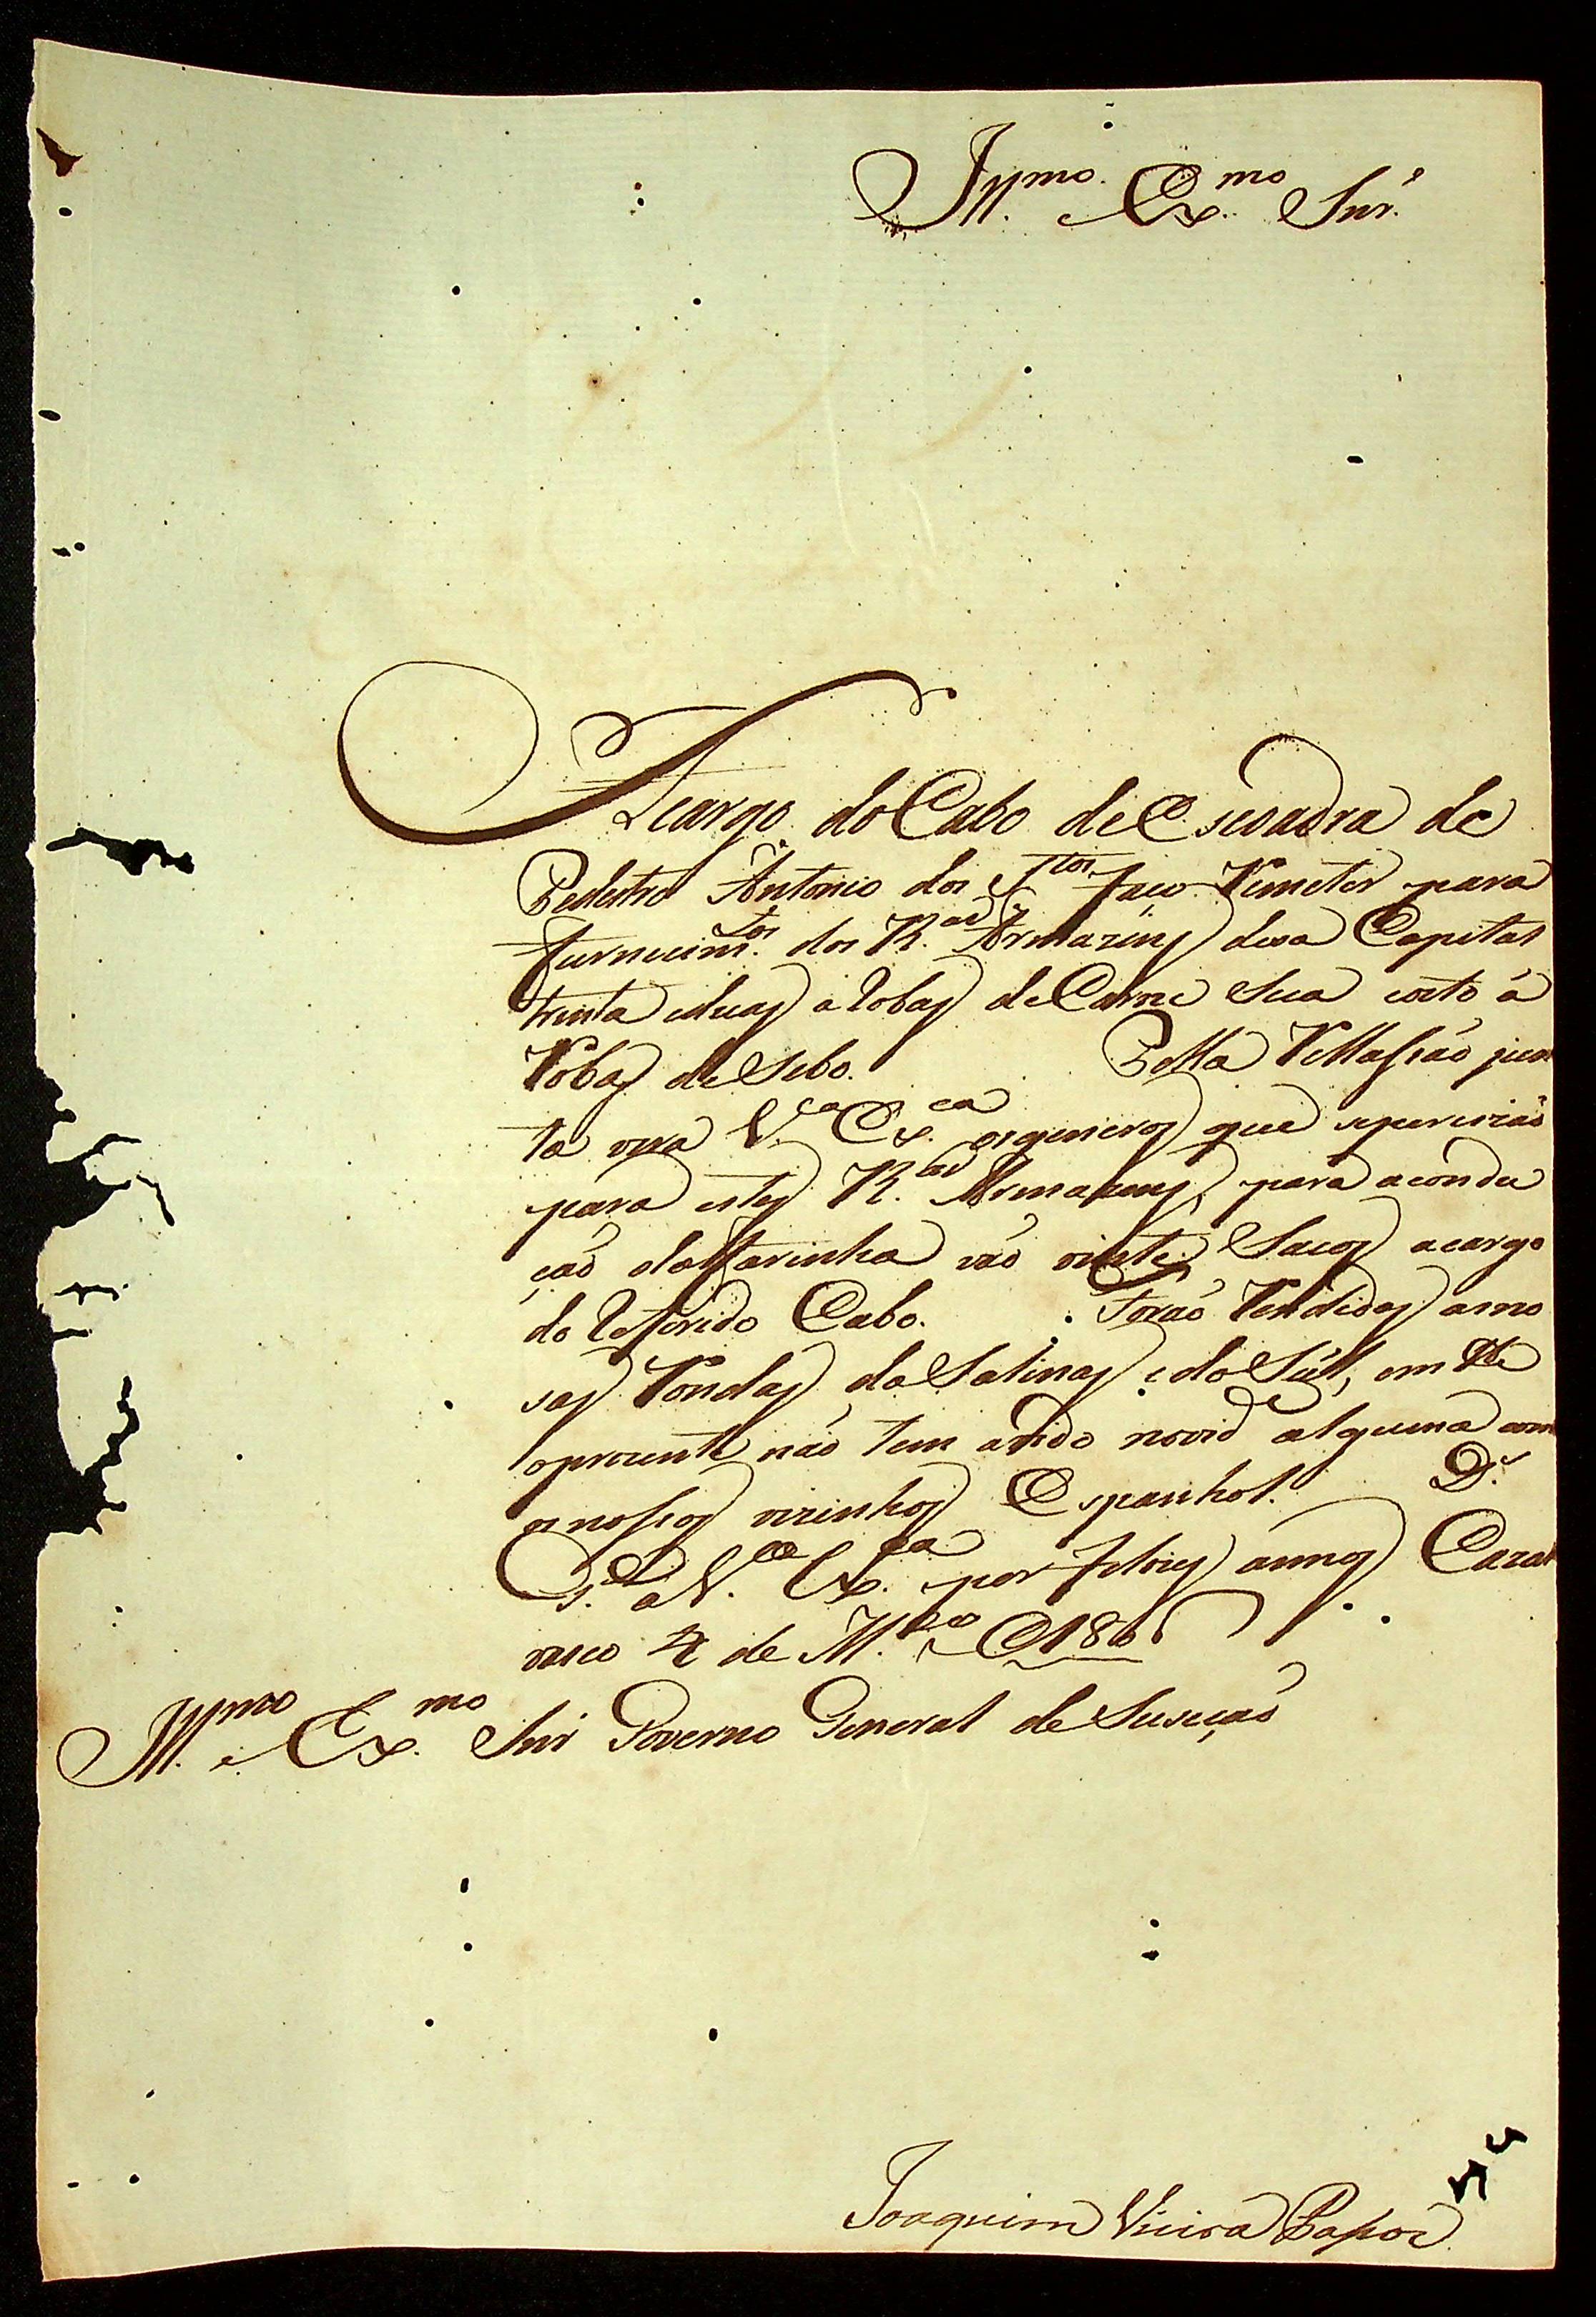 Ill.mo Ex.mo Snr.
Acargo do Cabo de Escoadra de
Pedestre Antonio dos S.tos faço Remeter para
furnecim.tos dos R.aes Armazens desa Capital
trinta eduas aRobas de Carne Seca eoito á
Robas de Sebo. Pella Rellassaõ jun
ta vera V.ca Ex.ca osgeneros que seprecizaõ
para estes R.aes Armazens, para acondu
çaõ dafarinha vaõ vinte Sacos acargo
do Referido Cabo. Foraõ Rendidas asno
sas Rondas da Salinas e do Sul, em the
oprezente não tem avido novid.e alguma com
osnossos vizinhos Espanhol. D.s
G.de a V.ca Ex.ca por felices annos Caza
vasco 4 de M.ço 180
Ill.mo e Ex.mo Snr Governo General de Susecaõ
Joaquim Vieira Passos